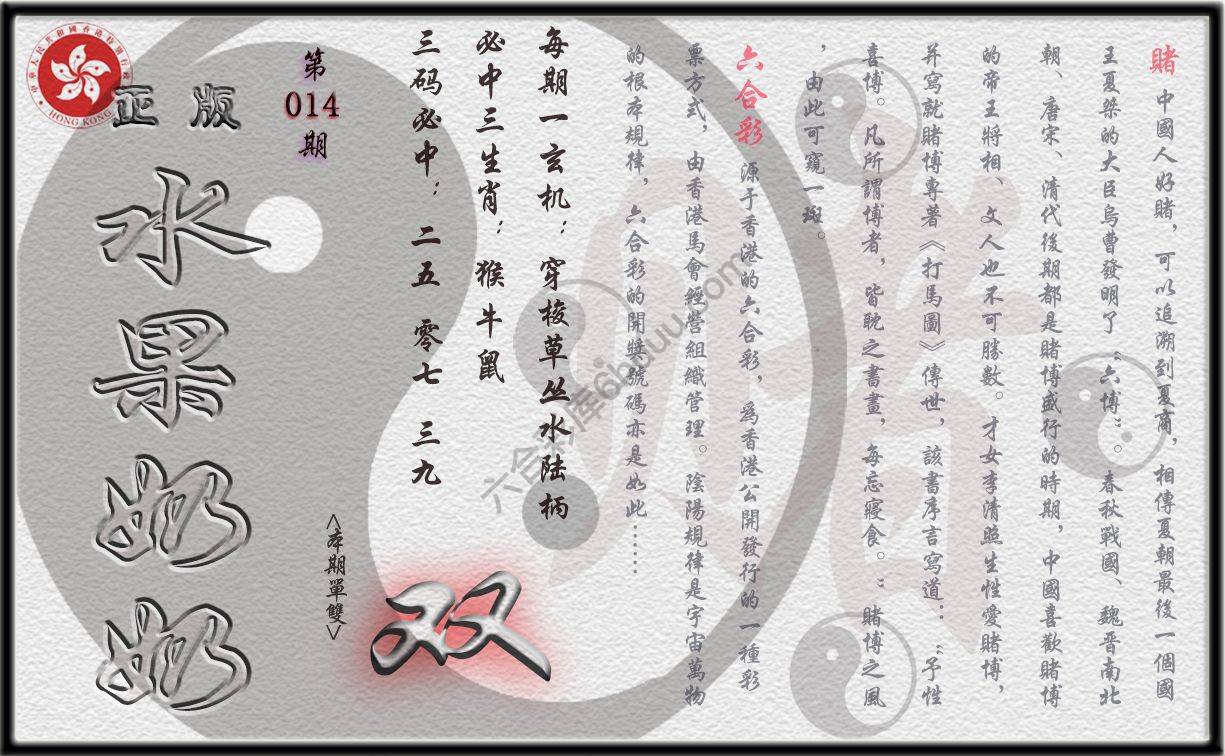 賭 中國人好賭，可以追溯到夏商，相傳夏朝最後一個國
王夏桀的大臣烏曹發明了“六博”。春秋戰國、魏晋南北
朝、唐宋、清代後期都是賭博盛行的時期，中國喜歡賭博
的帝王將相、文人也不可勝數。才女李清照生性愛賭博，
并寫就賭博專著《打馬圖》傳世，該書序言寫道：“予性
喜博。凡所謂博者，皆耽之書畫，每忘寢食。”賭博之風
，由此可窺一斑。
六合彩 源于香港的六合彩，爲香港公開發行的一種彩
票方式，由香港馬會經營組織管理。陰陽規律是宇宙萬物
的根本規律，六合彩的開獎號碼亦是如此……
每期一玄机：穿梭草丛水陆柄
必中三生肖：猴牛鼠
三码必中：二五 零七 三九
第
014
期
<本期單雙>
双
正版
水果奶奶
中華人民共和國香港特別行政區
HONG KONG
六合彩库6hduu.com